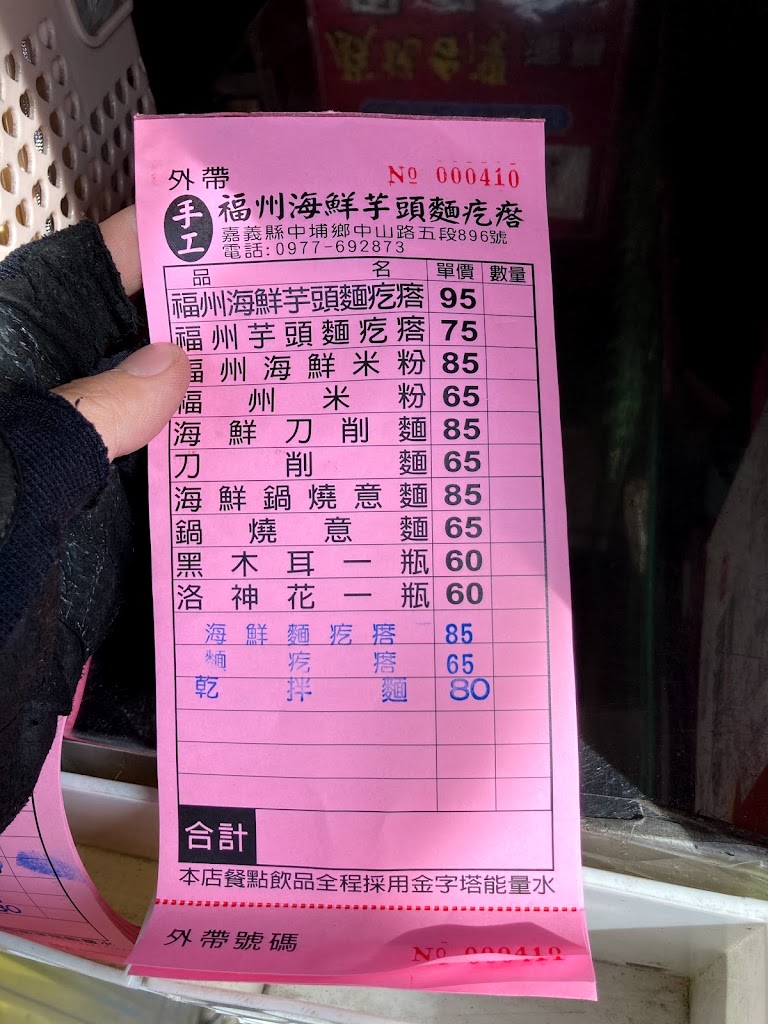 外帶 № 000410
手工 福州海鮮芋頭麵疙瘩
嘉義縣中埔鄉中山路五段896號
電話:0977-692873
品名 單價 數量
福州海鮮芋頭麵疙瘩 95
福州芋頭麵疙瘩 75
福州海鮮米粉 85
福州米粉 65
海鮮刀削麵 85
刀削麵 65
海鮮鍋燒意麵 85
鍋燒意麵 65
黑木耳一瓶 60
洛神花一瓶 60
海鮮麵疙瘩 85
麵疙瘩 65
乾拌麵 80
合計
本店餐點飲品全程採用金字塔能量水
外帶號碼 № 000410